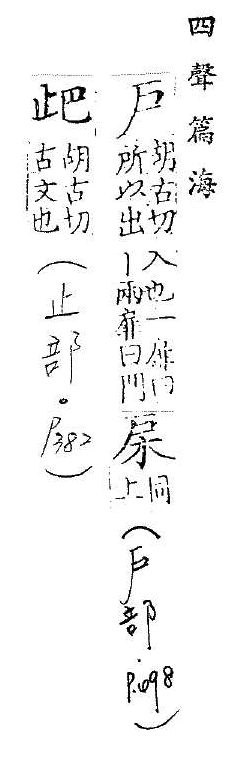 四聲篇海
戶 胡古切所以出入也一扉曰丨兩扉曰門 同上(戶部.P.698)
胡古切古文也(止部.P382)